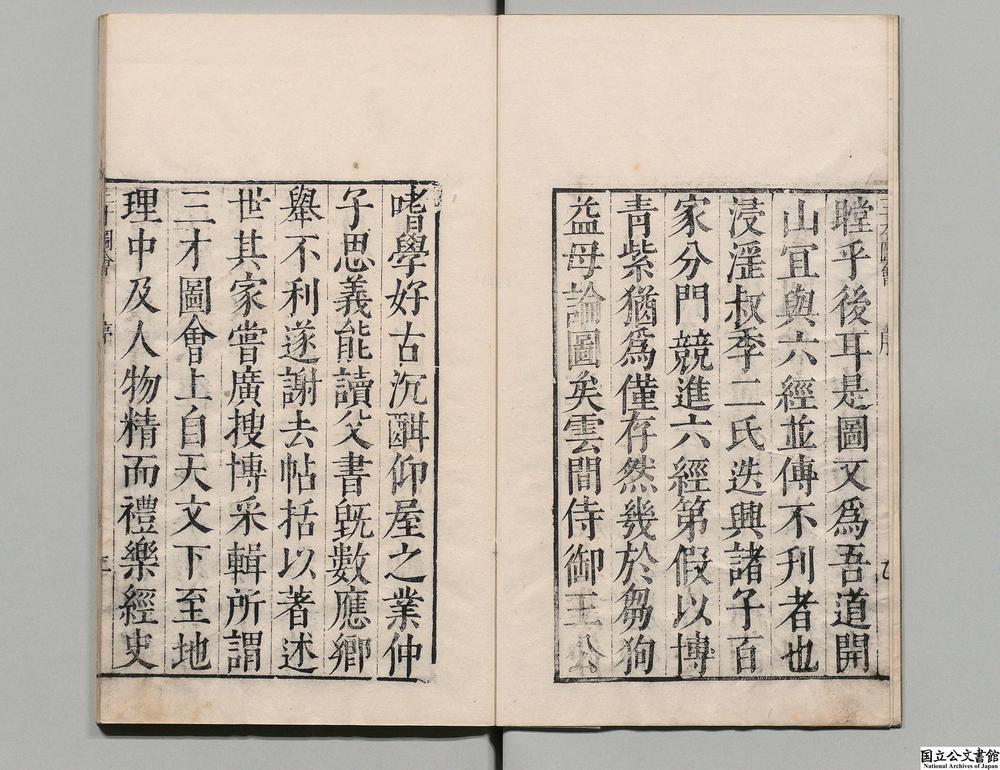 瞠乎後耳是圖又爲吾道開
山冝與六經並傳不刋者也
浸滛叔季二氏迭興諸子百
家分門競進六經第假以博
青紫猶爲僅存然幾於芻狗
益毋論圖矣雲間侍御王公
嗜學好古沉酣仰屋之業仲
子思義能讀父書旣數應鄉
舉不利遂謝去帖括以著述
世其家嘗廣搜博采輯所謂
三才圖會上自天文下至地
理中及人物精而禮樂經史
国立公文書館
National Archives of Japan